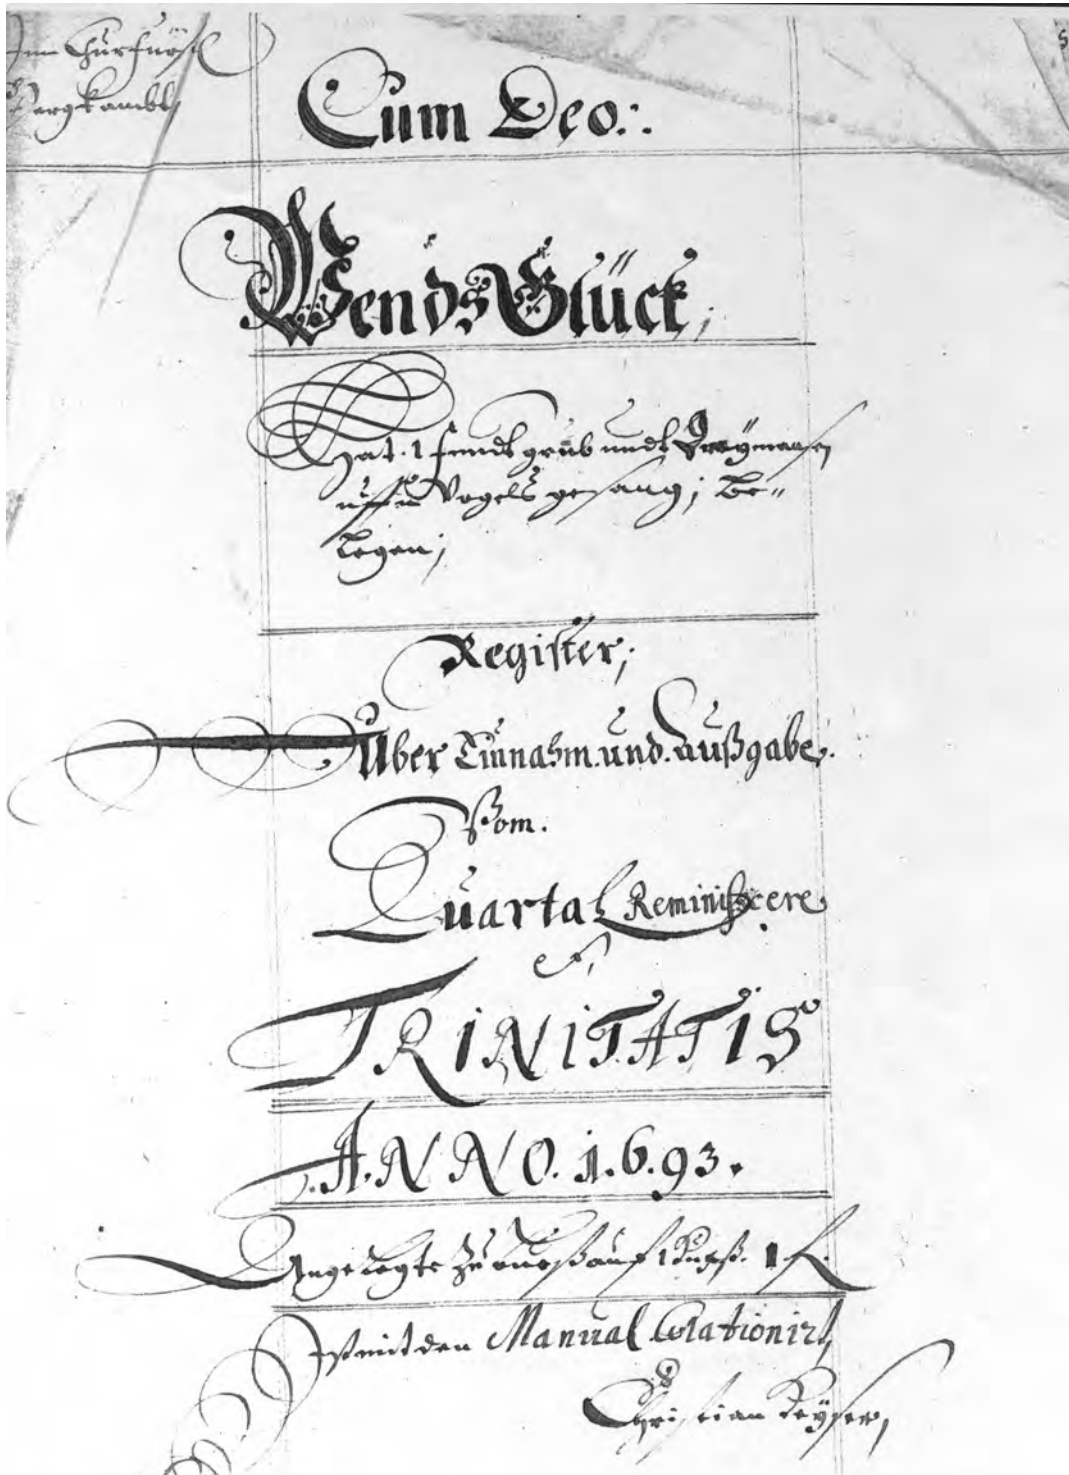 Im Churfürstl
Bergkambl
Cum Deo:.
WendsGlück;
Hat. 1 fundtgrub undt Dreymaasen
uffn Vogels gesang; be-
legen;
Register;
Über Einnahm. und. Außgabe.
Vom.
Quartal Reminißcere
TRINITATIS
ANNO. 1.6.93.
Angelegte Zubueß auf 1 Kuxß. 1 fl.
Ist mit den Manual Colationirt,
Christian Keyßer,